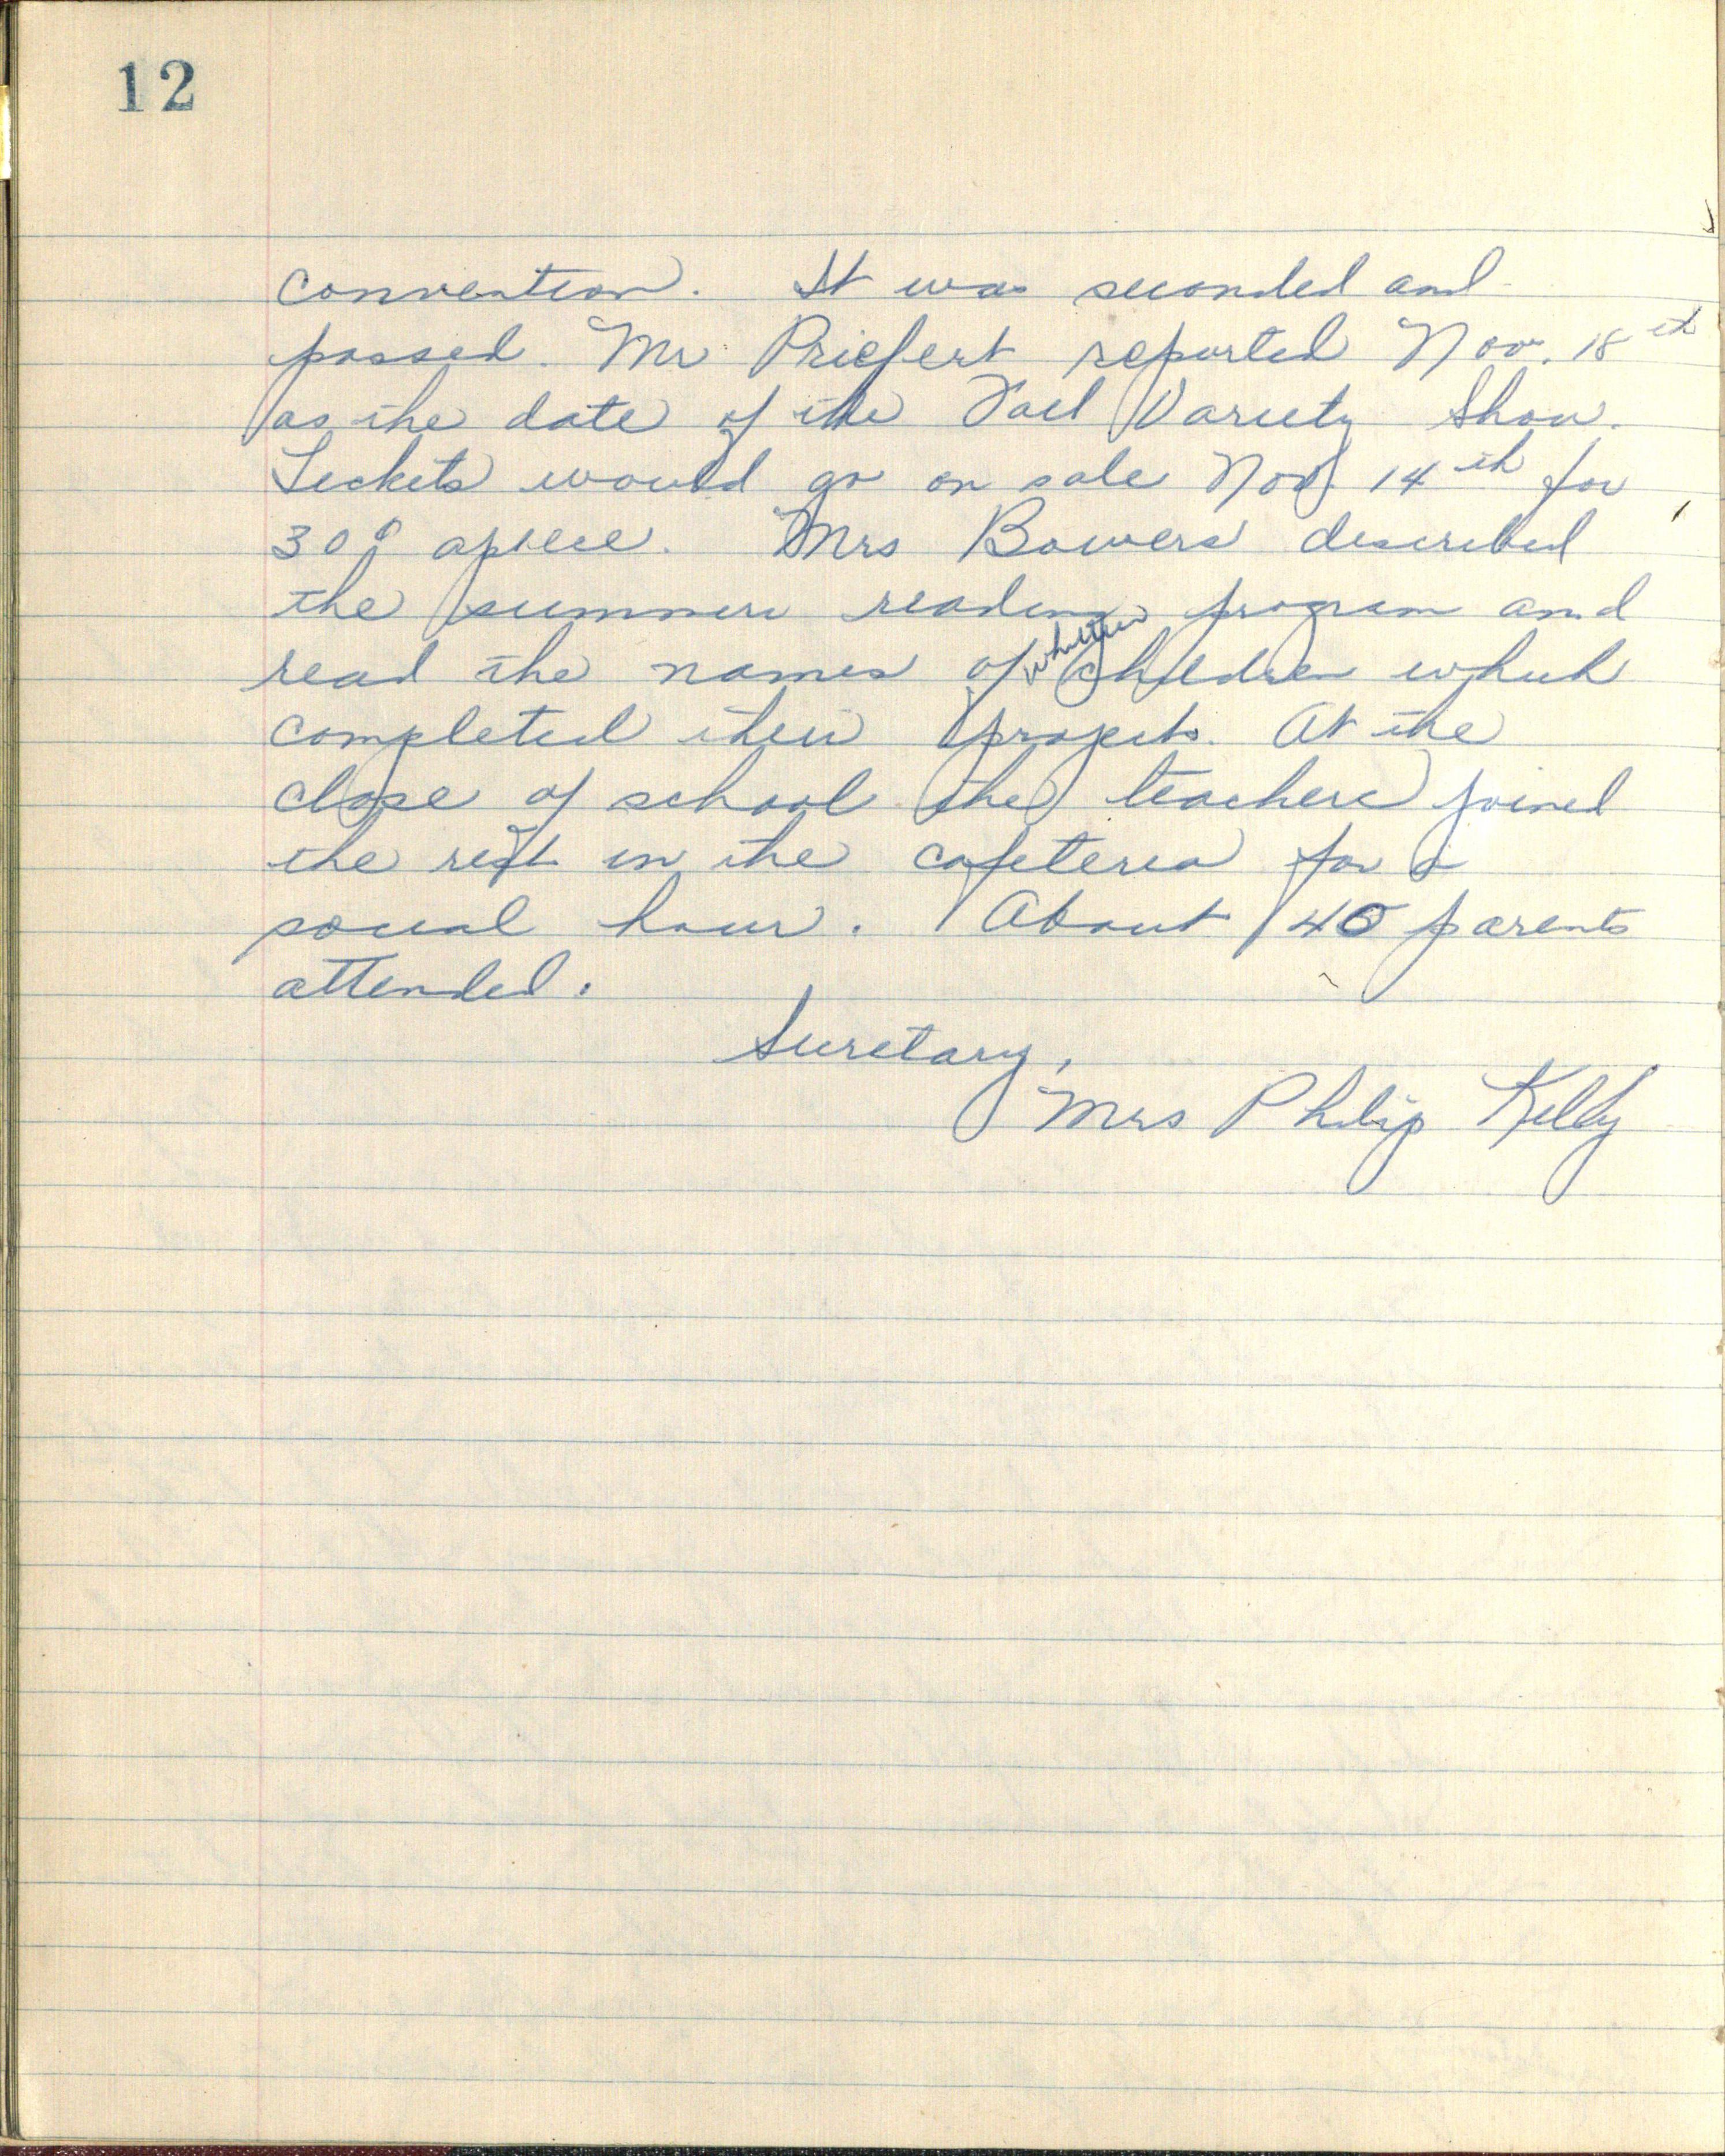 12
convention. It was seconded and
passed. Mr. Priefert reported Nov. 18th
as the date of the Fall Variety Show.
Tickets would go on sale Nov. 14th for
30¢ apiece. Mrs Bowers described
the summer reading program and
read the names of children which
completed their projects. At the
close of school the teachers joined
the rest in the cafeteria for a
social hour. About 40 parents
attended.
Secretary,
Mrs Philip Kelly